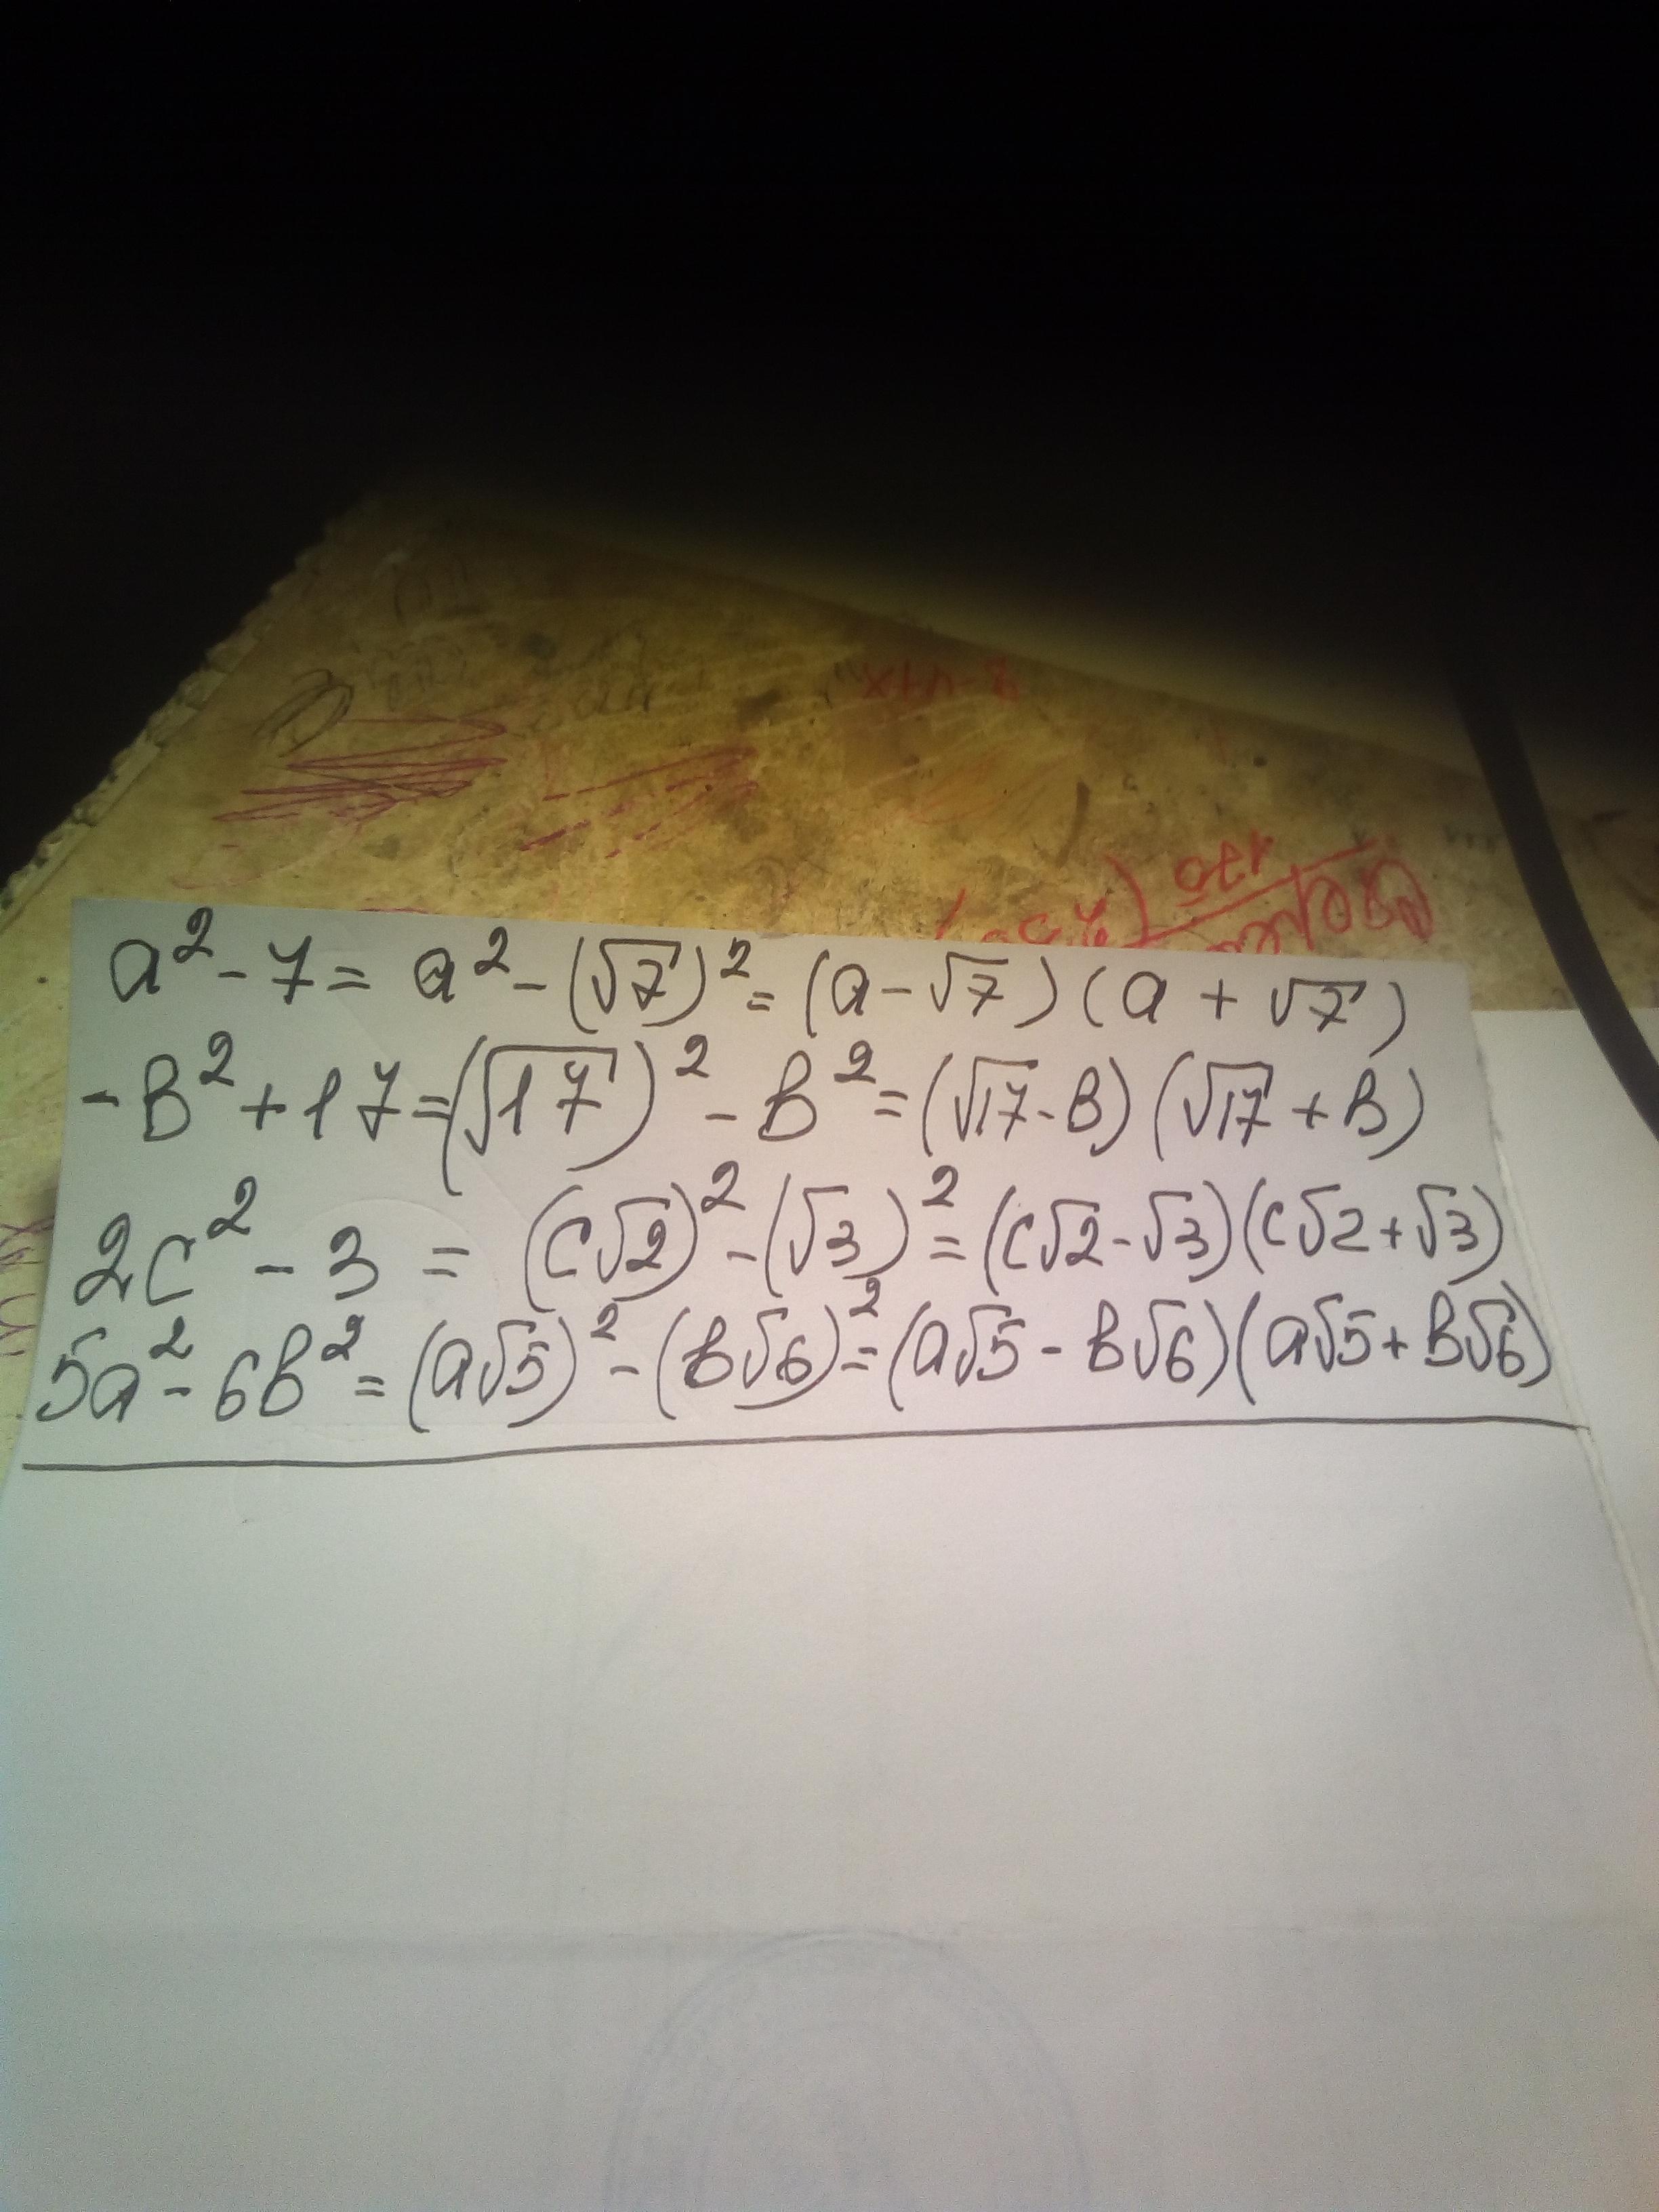 a² - 7 = a² - (√7)² = (a - √7)(a + √7)
- в² + 17 = (√17)² - в² = (√17 - в)(√17 + в)
2c² - 3 = (c√2)² - (√3)² = (c√2 - √3)(c√2 + √3)
5a² - 6в² = (a√5)² - (в√6)² = (a√5 - в√6)(a√5 + в√6)